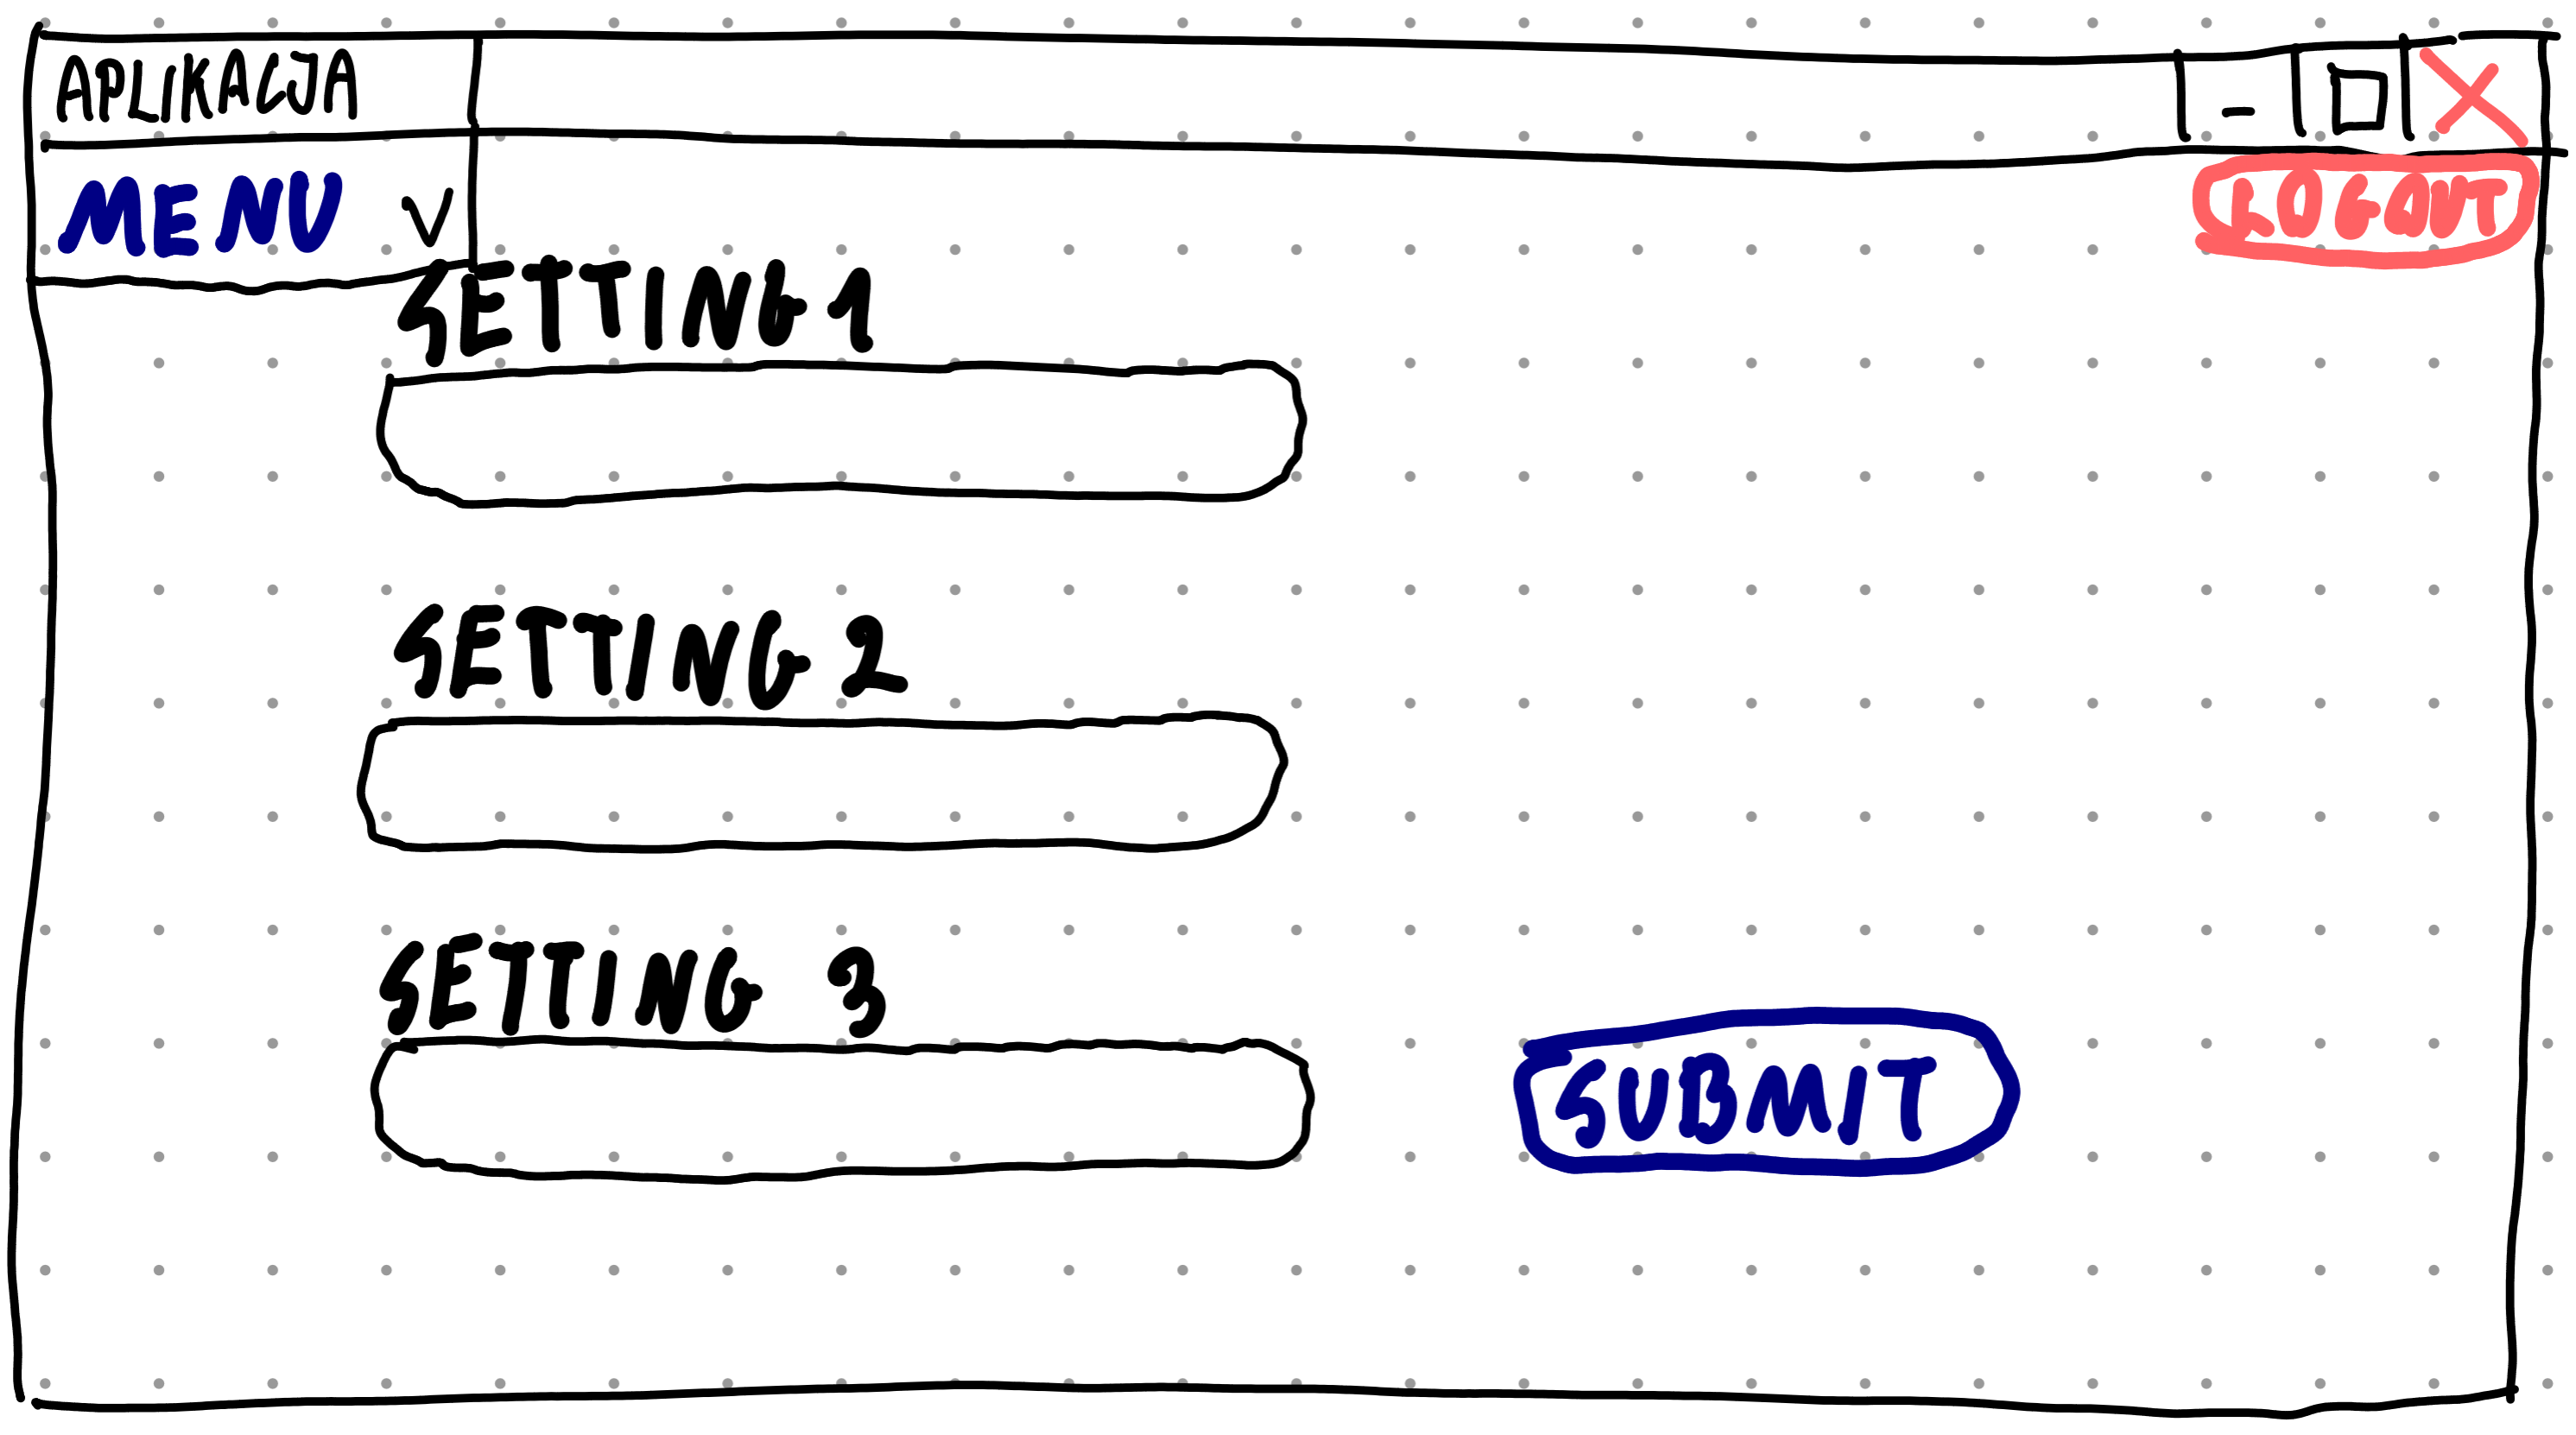 APLIKACJA
MENU
LOGOUT
SETTING 1
SETTING 2
SETTING 3
SUBMIT